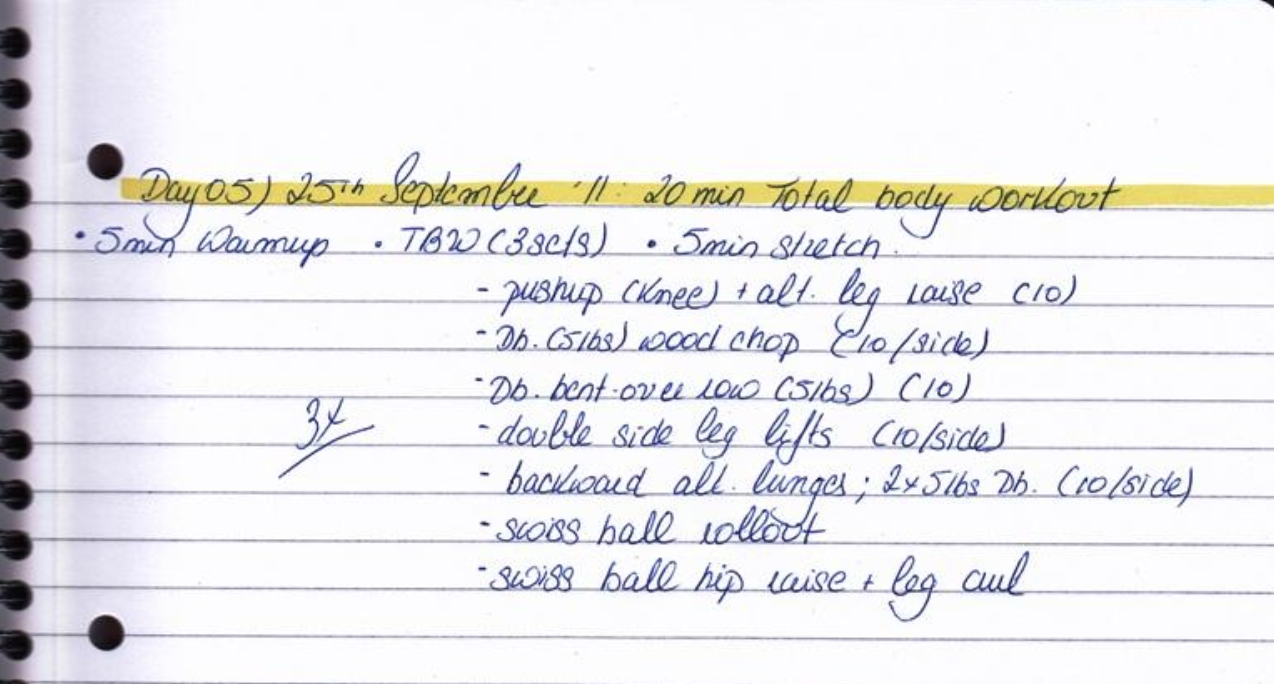 Day 05) 25th September '11: 20 min Total body workout
• 5min Warmup • TBW (3sets) • 5min stretch.
- pushup (knee) + alt. leg raise (10)
- Db. (5lbs) wood chop (10/side)
- Db. bent-over row (5lbs) (10)
3x
- double side leg lifts (10/side)
- backward alt. lunges; 2x5lbs Db. (10/side)
- swiss ball rollout
- swiss ball hip raise + leg curl